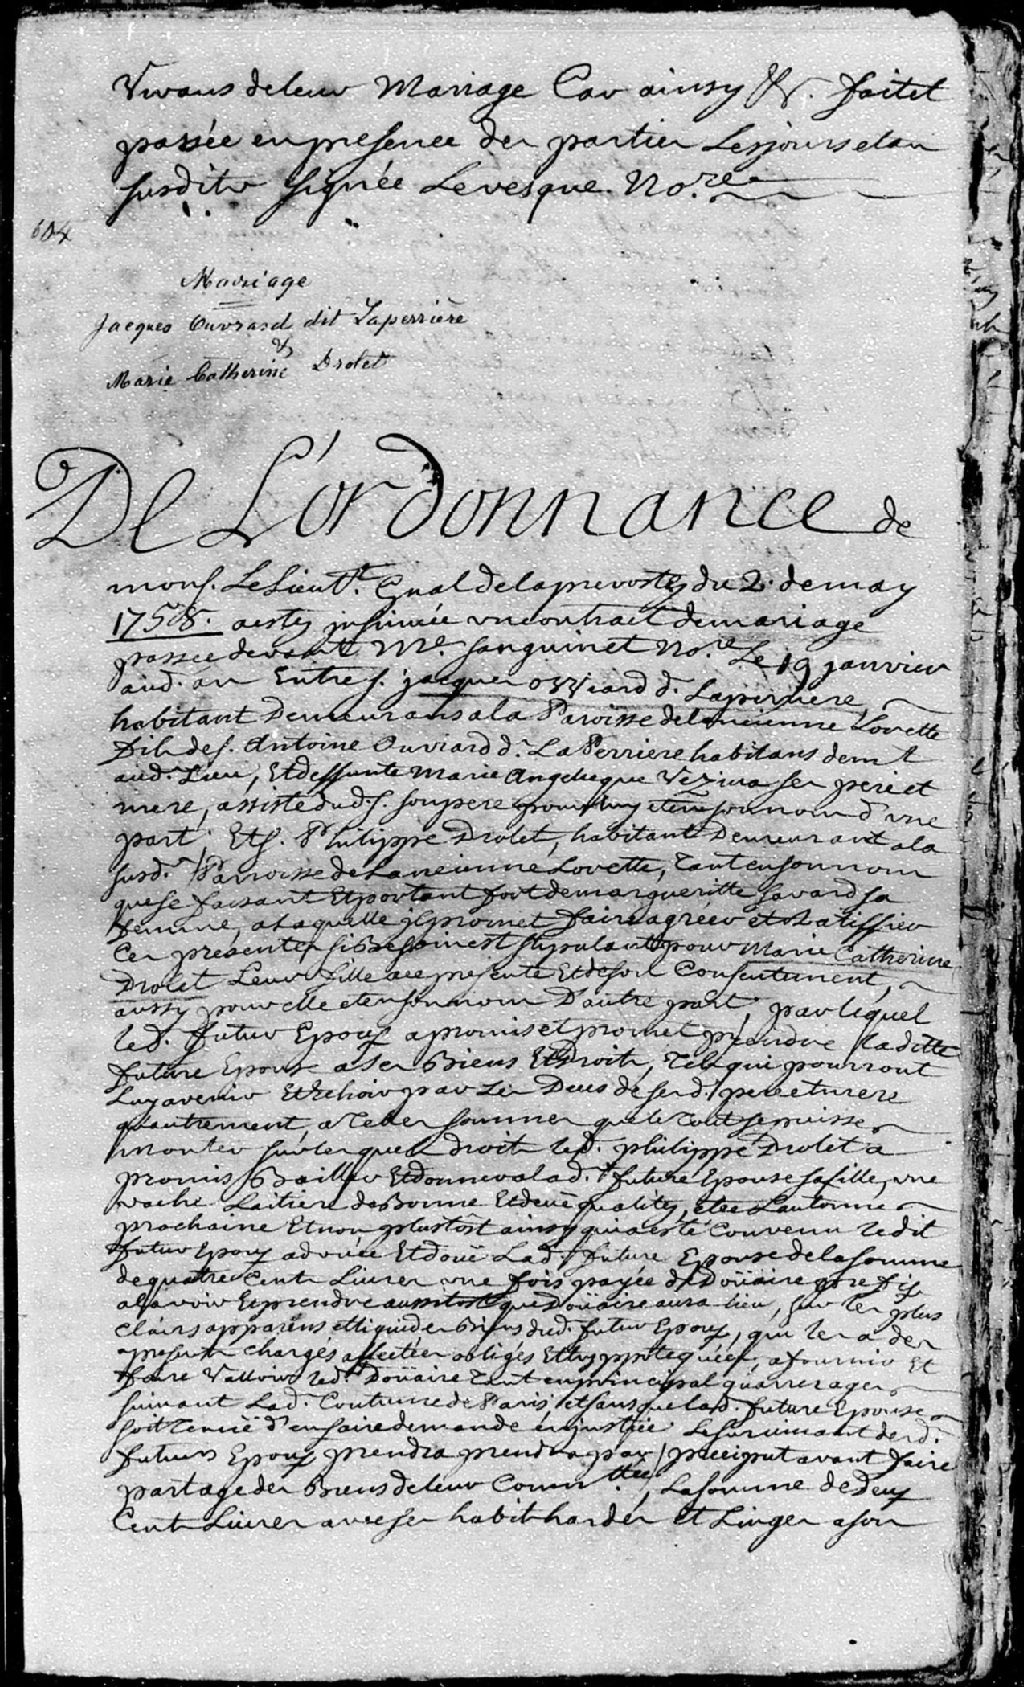 Vivans de leur Mariage Car ainsy &c. fait et
passée en presence des parties Les jours et an
susdits signée Levesque No.re
604
Mariage
Jacques Ouvrard dit Laperrière
&
Marie Catherine Drolet
De L'ordonnance de
mons. Le Lieut.t Gnal de la prevosté du 2. de may
1758. a esté insinuée un contract de mariage
passee devant M.e sanguinet No.re Le 19 janvier
aud. an Entre s. jacques ovviard d. Laperriere,
habitant Demeurans a la Paroisse de lancienne Lorette
Fils de s. Antoine Ouviard d. La Perriere habitans dem.t
aud. Lieu, Et deffunte Marie Angelieque Vezina ses pere et
mere, assisté dud. s. son pere pour luy et en son nom d'une
part; Et s. Philippe Drolet, habitant Demeurant a la
susd. Parroisse de Lancienne Lorette, tant en son nom
que se faisant Et portant fort de margueritte Savard sa
femme, a laquelle il promet faire agréer et Ratiffier
Ces présentes si Besoin est stipulant pour Marie Catherine
Drolet Leur fille a ce présente Et de son Consentement,
aussy pour elle et en son nom D'autre part, par lequel
led. futur Epoux a promis et promet prendre la ditte
future Epouse a ses Biens Et Droits, tels qui pourront
Luy avenir Et Echoir par Les Deces de sesd. pere et mere
qu'autrement, a telles sommes que le tout se puisse
monter sur lesquels droits led. philippe Drolet a
promis Bailler Et donner a lad. future Epouse sa fille, une
vache Laitiere de Bonne Et deuë qualités, Lautonne
prochaine Et non plustost ainsy qui a esté Convenu ledit
futur Epoux a douée Et douë Lad. future Epouse de la somme
de quatre Cents Livres une fois payée de Doüaire prefix
a lavoir Et prendre aussitost que Doüaire aura lieu, sur les plus
clairs apparens et liquides Biens dud. futur Epoux, qui les a des
apresent chargés affectées obligés Et hyppotequées, a fournir Et
faire Valloir led. Doüaire tant en principal qu'arrerages
suivant Lad. Coutume de Paris, et sans que lad. future Epouse
soit tenuë d'en faire demande en justice Le survivant desd.
futurs Epoux prendra prendra par preciput avant faire
partage des Biens de leur Comm.tée, La somme de deux
Cents Livres avec ses habits hardes et Linges a son